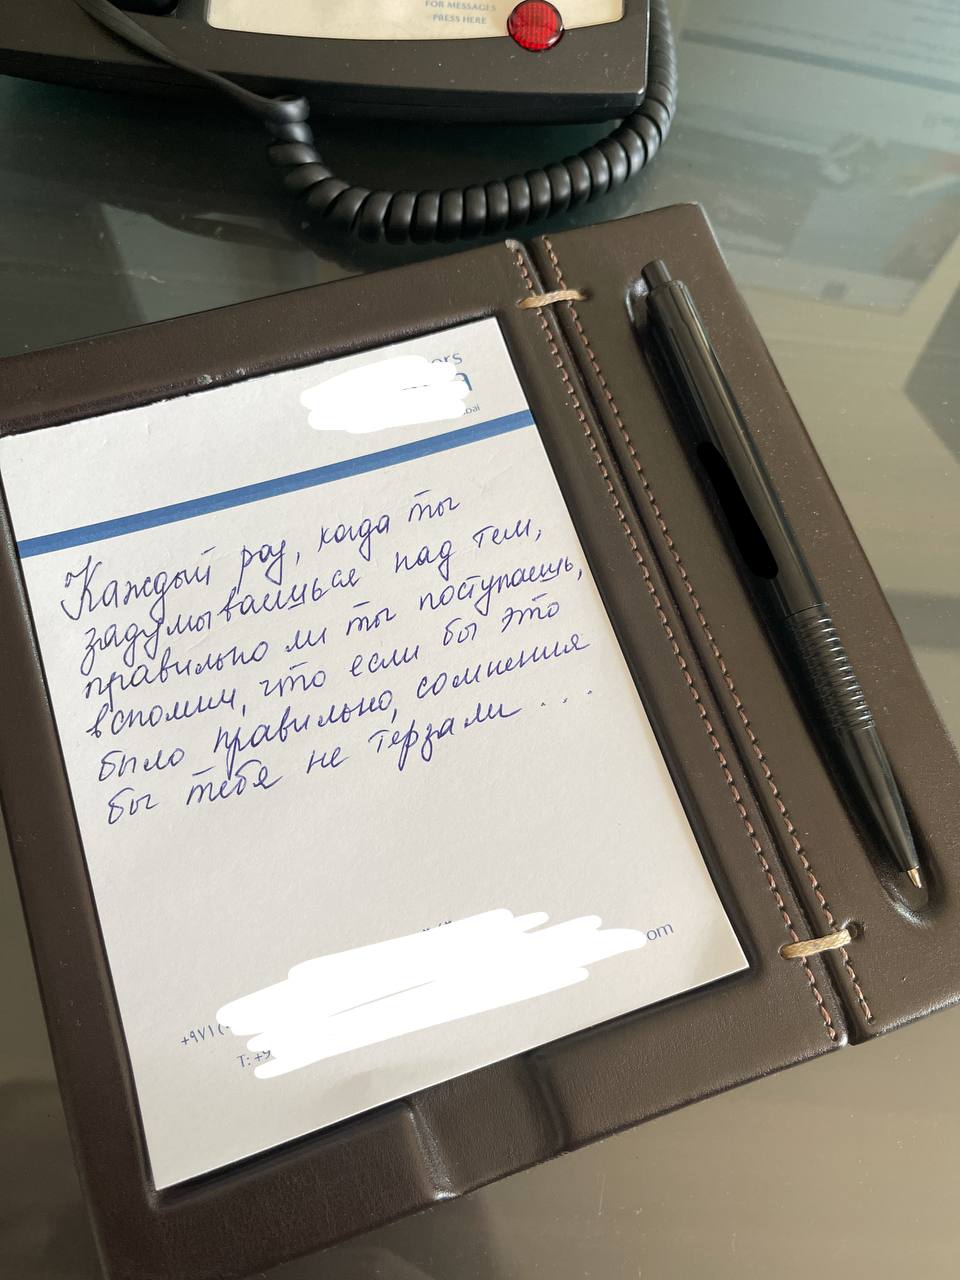 FOR MESSAGES
PRESS HERE
Каждый раз, когда ты
задумываешься над тем,
правильно ли ты поступаешь,
вспомни, что если бы это
было правильно, сомнения
бы тебя не терзали...
+٩٧١ (
T: +9
om